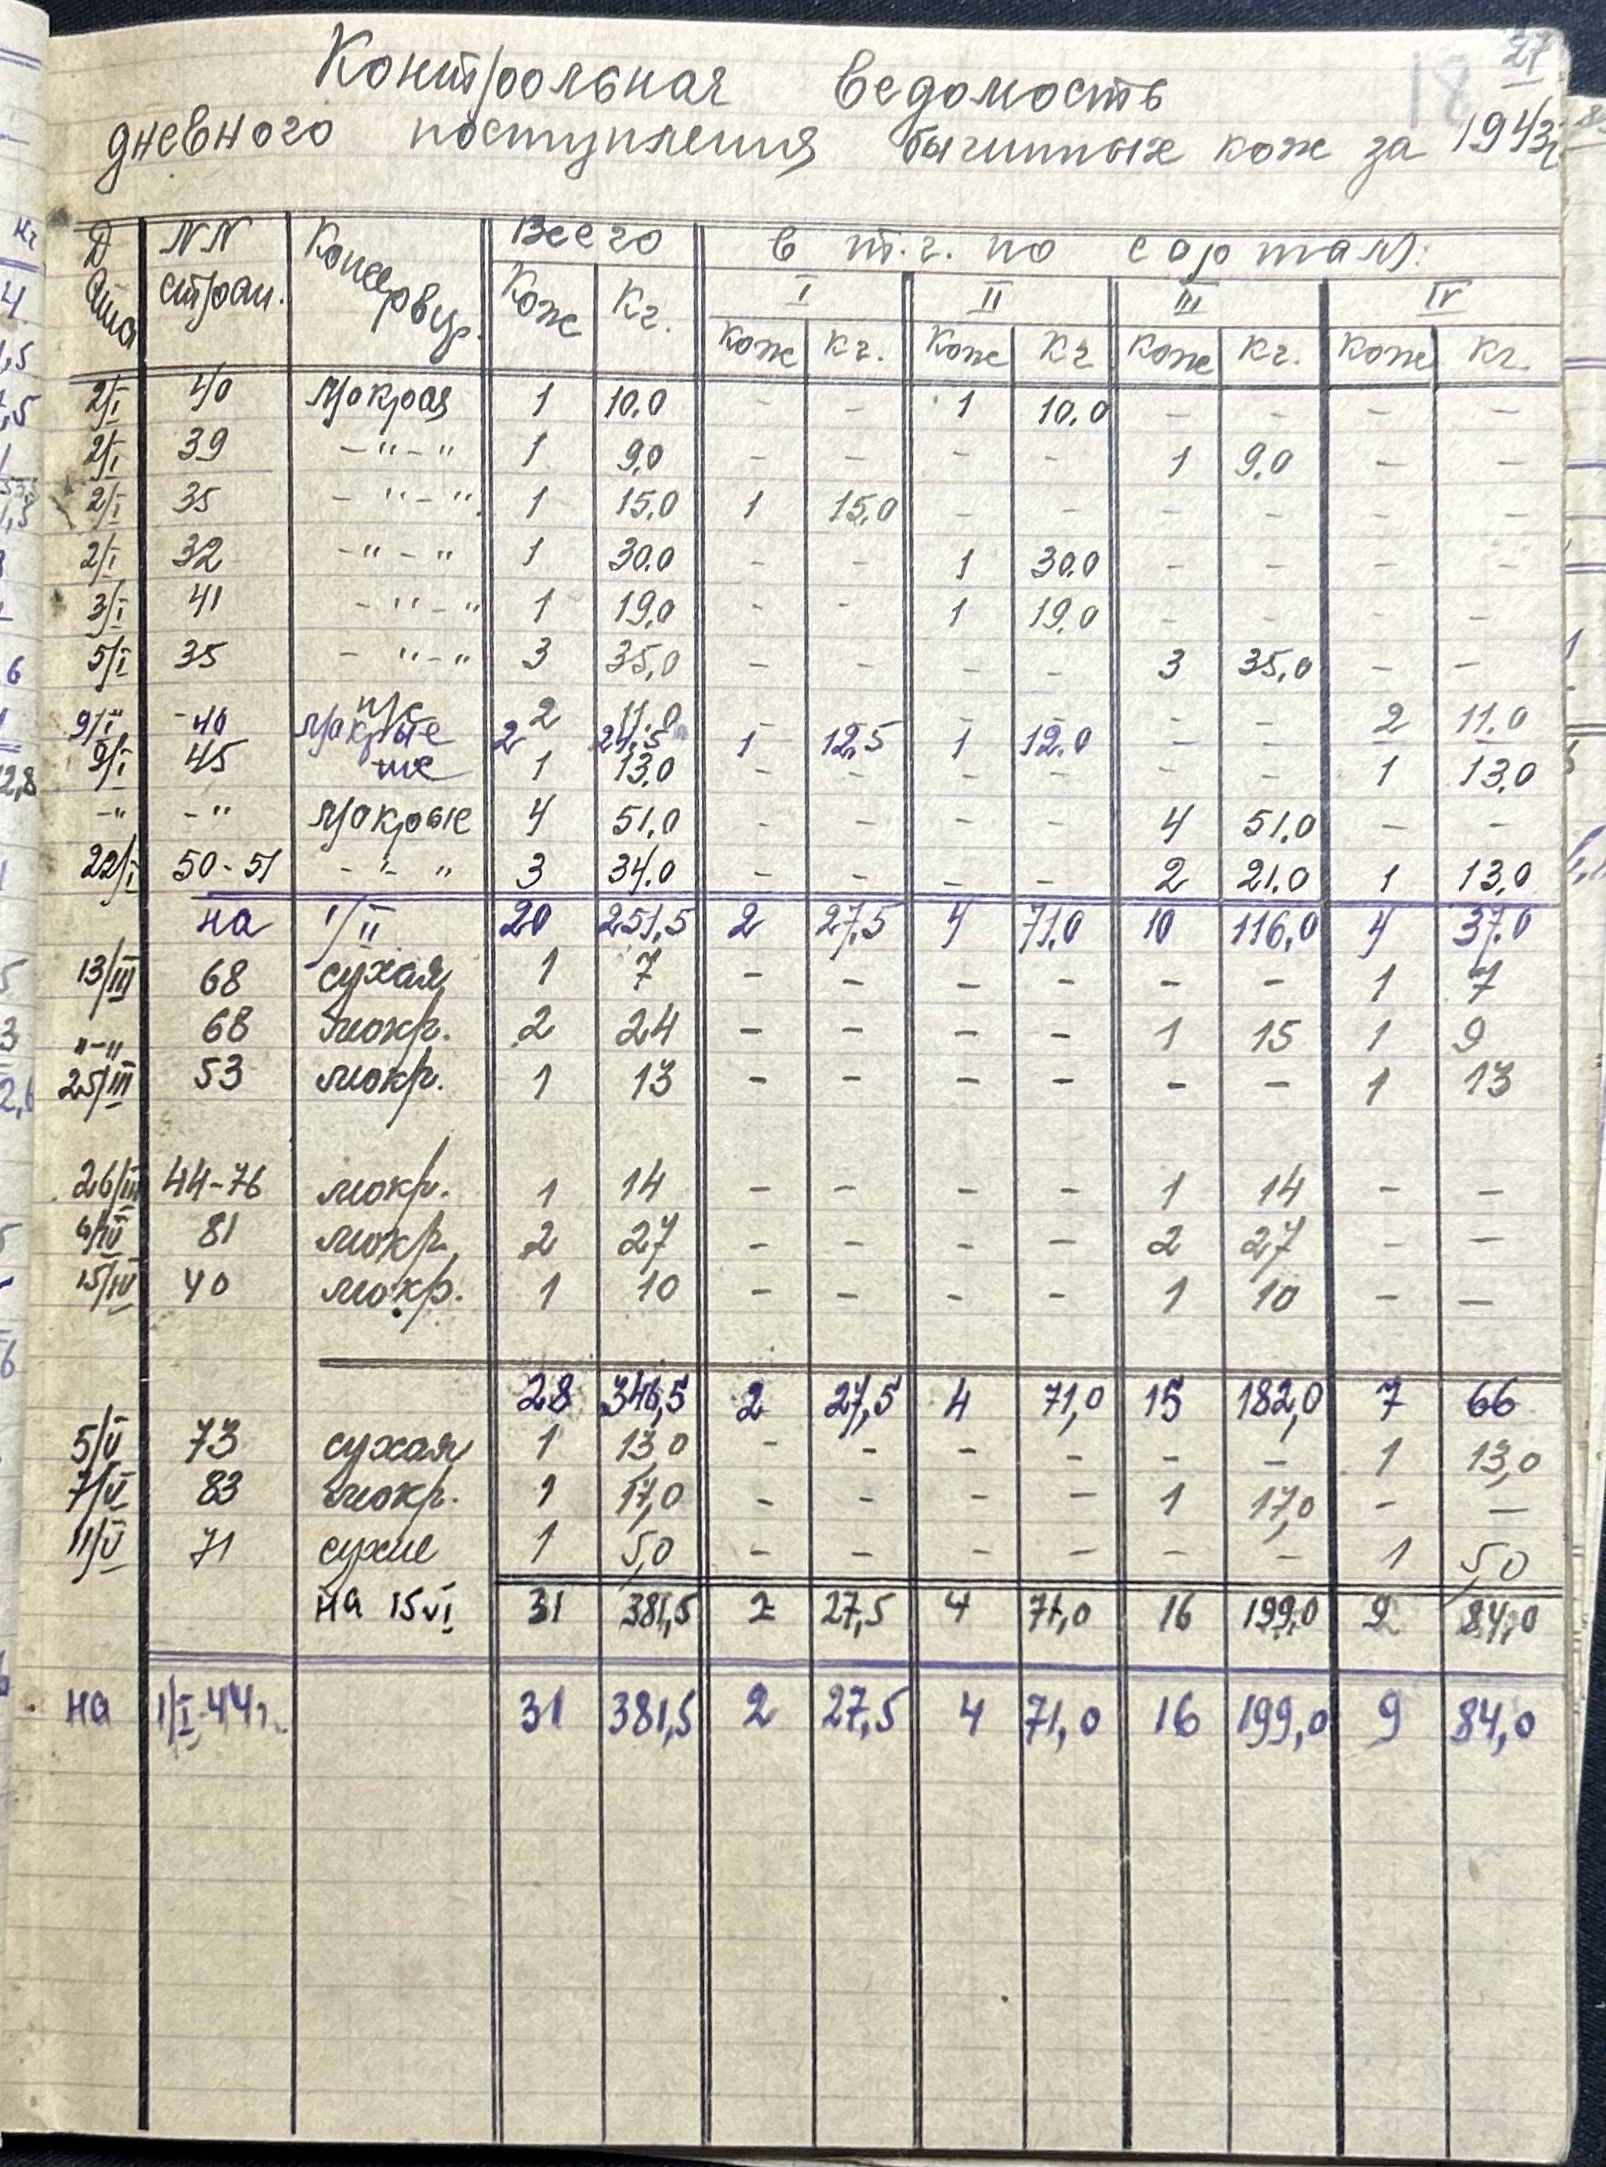 27
18
Контрольная ведомость
дневного поступления бычиных кож за 1943г
Дата NN стран. Консервир. Всего в т.ч. по сортам:
Кож Кг. I II III IV
кож кг. кож кг кож кг. кож кг.
2/I 40 Мокрая 1 10.0 - - 1 10.0 - - - -
2/I 39 -"-" 1 9.0 - - - - 1 9.0 - -
2/I 35 -"-" 1 15.0 1 15.0 - - - - - -
2/I 32 -"-" 1 30.0 - - 1 30.0 - - - -
3/I 41 -"-" 1 19.0 - - 1 19.0 - - - -
5/I 35 -"-" 3 35,0 - - - - 3 35,0 - -
" - п/с 2 11.0 - - - - - - 2 11.0
9/I 40 Мокрые 2 24.5 1 12.5 1 12.0 - - - -
9/I 45 1 13.0 - - - - - - 1 13.0
-" -" Мокрые 4 51.0 - - - - 4 51.0 - -
22/I 50-51 -"-" 3 34.0 - - - - 2 21.0 1 13,0
на 1/II 20 251,5 2 27,5 4 71.0 10 116,0 4 37.0
13/III 68 сухая 1 7 - - - - - - 1 7
"-" 68 мокр. 2 24 - - - - 1 15 1 9
25/III 53 мокр. 1 13 - - - - - - 1 13
26/III 44-76 мокр. 1 14 - - - - 1 14 - -
9/IV 81 мокр. 2 27 - - - - 2 27 - -
15/IV 40 мокр. 1 10 - - - - 1 10 - -
28 346,5 2 27,5 4 71,0 15 182,0 7 66
5/V 73 сухая 1 13,0 - - - - - - 1 13,0
7/V 83 мокр. 1 17,0 - - - - 1 17,0 - -
11/V 71 сухие 1 5,0 - - - - - - 1 5,0
на 15 VI 31 381,5 2 27,5 4 71,0 16 199,0 9 84,0
на 1/I-44г. 31 381,5 2 27,5 4 71,0 16 199,0 9 84,0